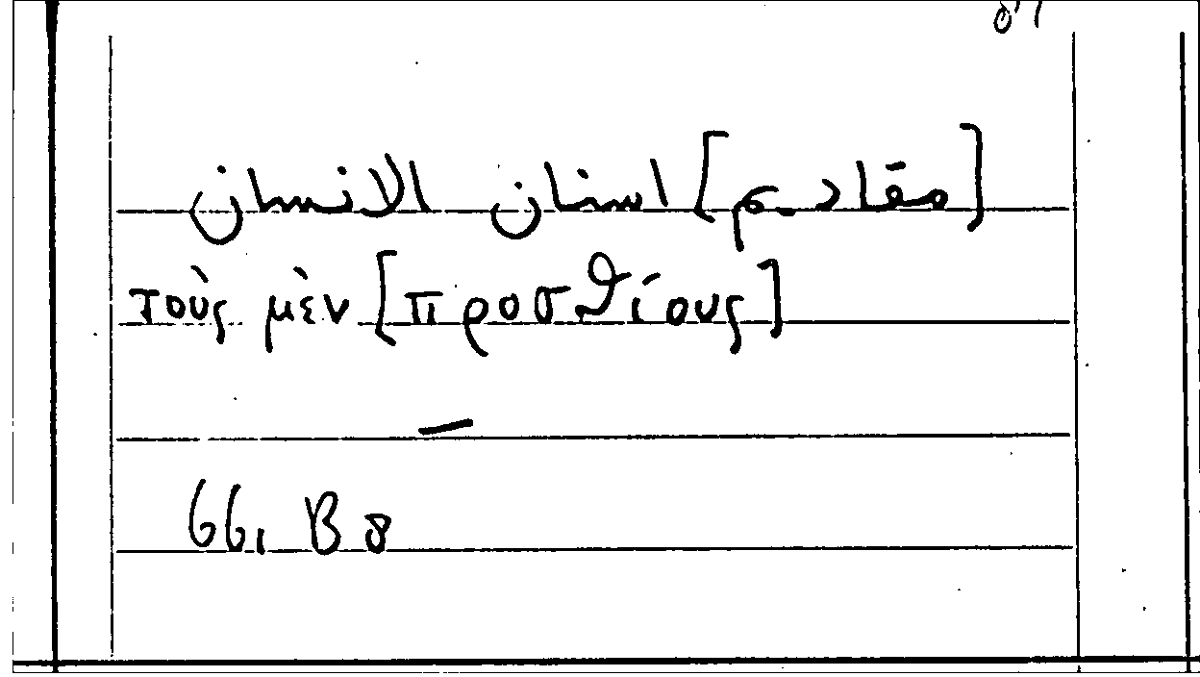 [مقاديم] اسنان الانسان
τοὺς μὲν [προσθίους]
—
66, B 8